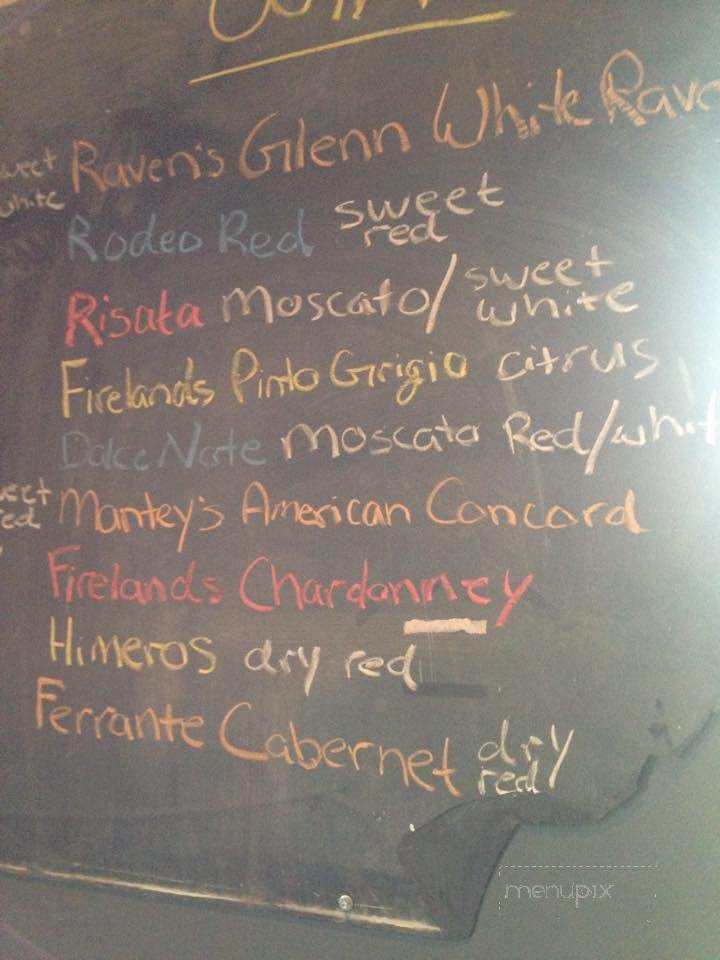 sweet white Raven's Glenn White Rave
Rodeo Red sweet red
Risata Moscato/ sweet white
Firelands Pinto Grigio citrus
Dolce Note Moscato Red/whit
sweet red Mantey's American Concord
Firelands Chardonney
Himeros dry red
Ferrante Cabernet dry red
menupix